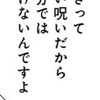 さって
い呪いだから
分では
けないんですよ